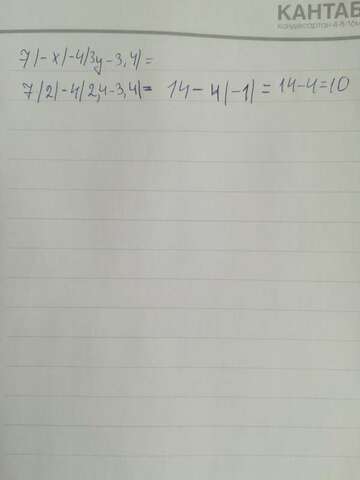 КАНТАБ
7|-x|-4|3y-3,4|=
7|2|-4|2,4-3,4|= 14-4|-1|=14-4=10